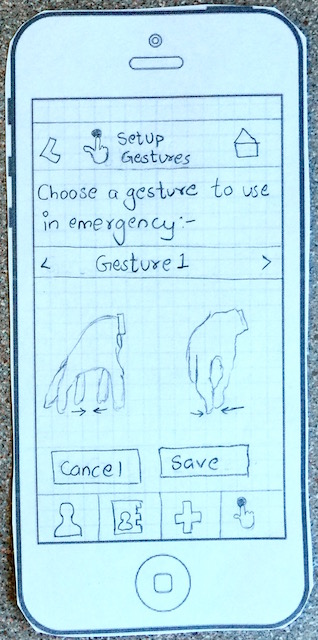 Setup
Gestures
Choose a gesture to use
in emergency:-
< Gesture 1 >
Cancel Save